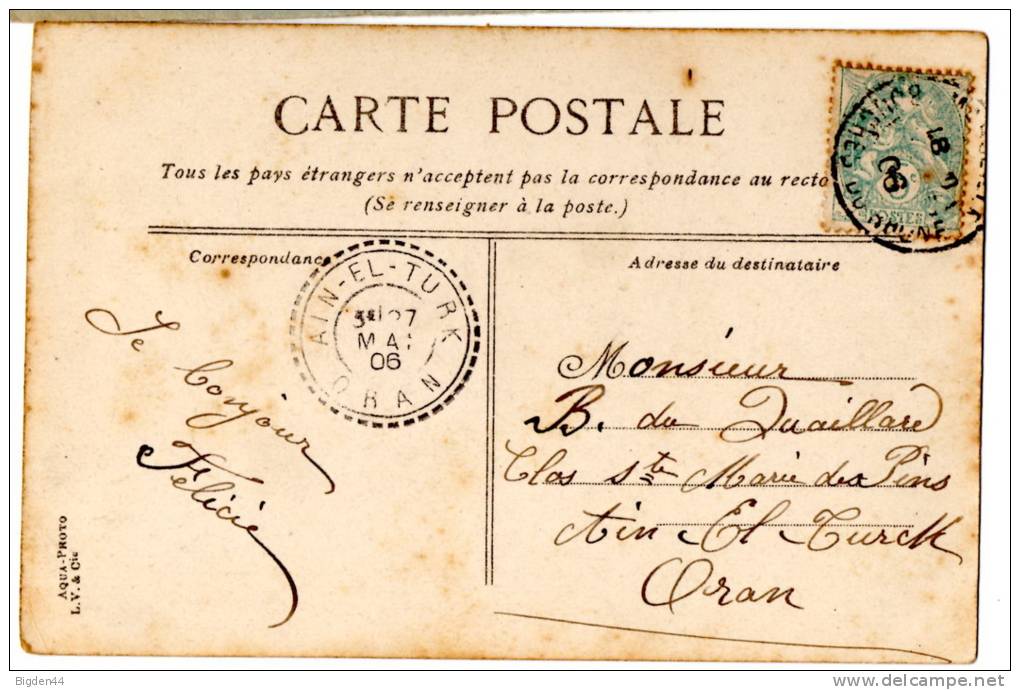 CARTE POSTALE
Tous les pays étrangers n'acceptent pas la correspondance au recto
(Se renseigner à la poste.)
Correspondance
Adresse du destinataire
AIN-EL-TURK
27
MAI
06
ORAN
18
06
POSTES
Je
bonjour
Félicie
Monsieur
B. du Quaillard
Clos Ste Marie des Pins
Ain El Turck
Oran
AQUA-PHOTO
L. V. & Cie
Bigden44
www.delcampe.net